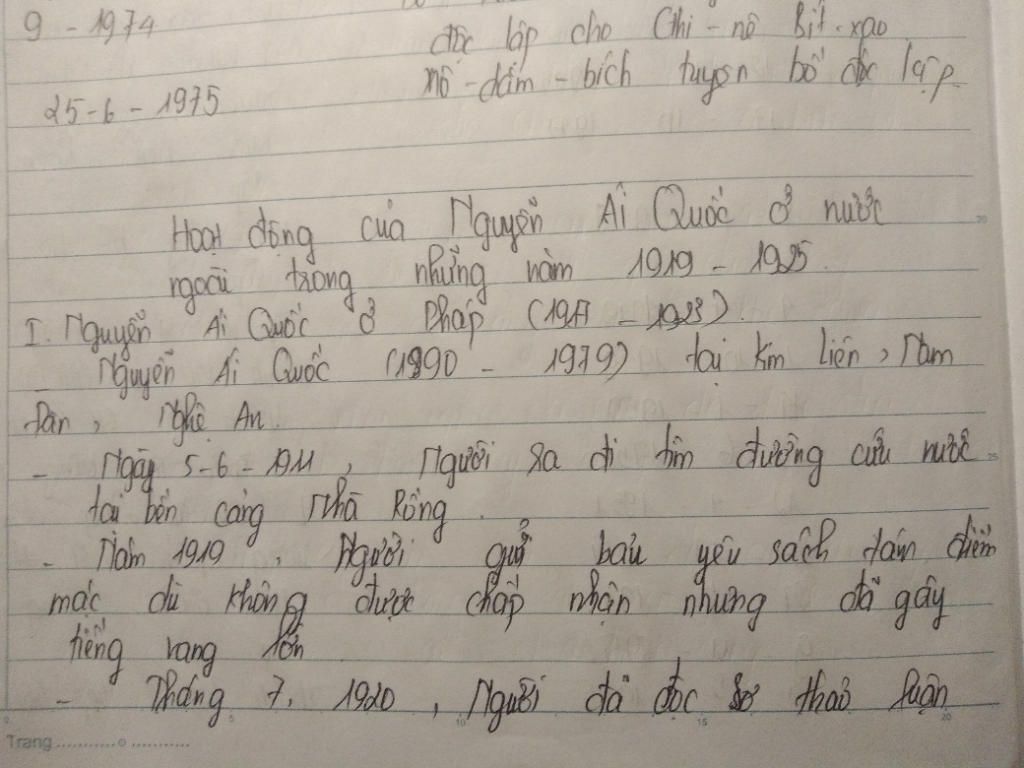 9 - 1974
độc lập cho Ghi - nê Bit - xao
25-6 - 1975
Mô - dăm - bích tuyên bố độc lập
Hoạt động của Nguyễn Ái Quốc ở nước
ngoài trong những năm 1919 - 1925
I. Nguyễn Ái Quốc ở Pháp (1917 - 1923)
- Nguyễn Ái Quốc (1890 - 1979) tại Kim Liên, Nam
Đàn, Nghệ An.
- Ngày 5-6-1911, Người ra đi tìm đường cứu nước
tại bến cảng Nhà Rồng.
- Năm 1919, Người gửi bản yêu sách tám điểm
mặc dù không được chấp nhận nhưng đã gây
tiếng vang lớn
- Tháng 7, 1920, Người đã đọc sơ thảo luận
Trang